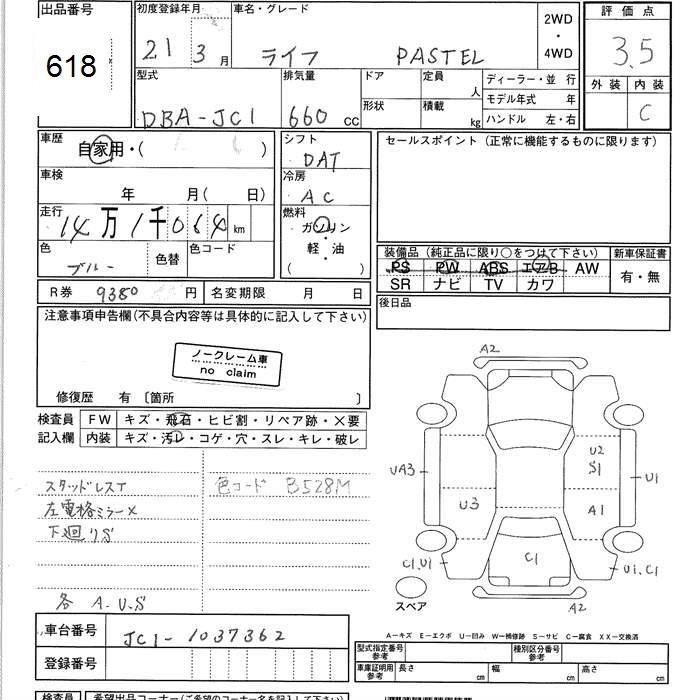 出品番号
618
初度登録年月
21 3月
車名・グレード
ライフ PASTEL
2WD
・
4WD
評価点
3.5
外装 内装
C
型式
DBA-JC1
排気量
660 cc
ドア
形状
定員
人
積載
kg
ディーラー・並 行
モデル年式 年
ハンドル 左・右
車歴
自家用・( )
車検
年 月( 日)
走行
14万1千064 km
色
ブルー
色替
色コード
シフト
DAT
冷房
AC
燃料
ガソリン
・
軽・油
( )
セールスポイント(正常に機能するものに限ります)
装備品(純正品に限り○をつけて下さい)
PS PW ABS エアB AW
SR ナビ TV カワ
新車保証書
有・無
R券 9380 円
名変期限 月 日
後日品
注意事項申告欄(不具合内容等は具体的に記入して下さい)
ノークレーム車
no claim
修復歴 有 〔箇所 〕
検査員
記入欄
FW キズ・飛石・ヒビ割・リペア跡・×要
内装 キズ・汚レ・コゲ・穴・スレ・キレ・破レ
スタッドレスT
色コード B528M
左電格ミラー×
下廻リS
各 A.U.S
A2
UA3
U2
S1
U1
U3
A1
C1.U1
C1
U1.C1
A2
スペア
車台番号 JC1-1037362
登録番号
A-キズ E-エクボ U-凹み W-補修跡 S-サビ C-腐食 XX-交換済
型式指定番号
参考
種別区分番号
参考
車庫証明用
参考
長さ cm 幅 cm 高さ cm
検査員
希望出品コーナー(ご希望のコーナー名を記入下さい)